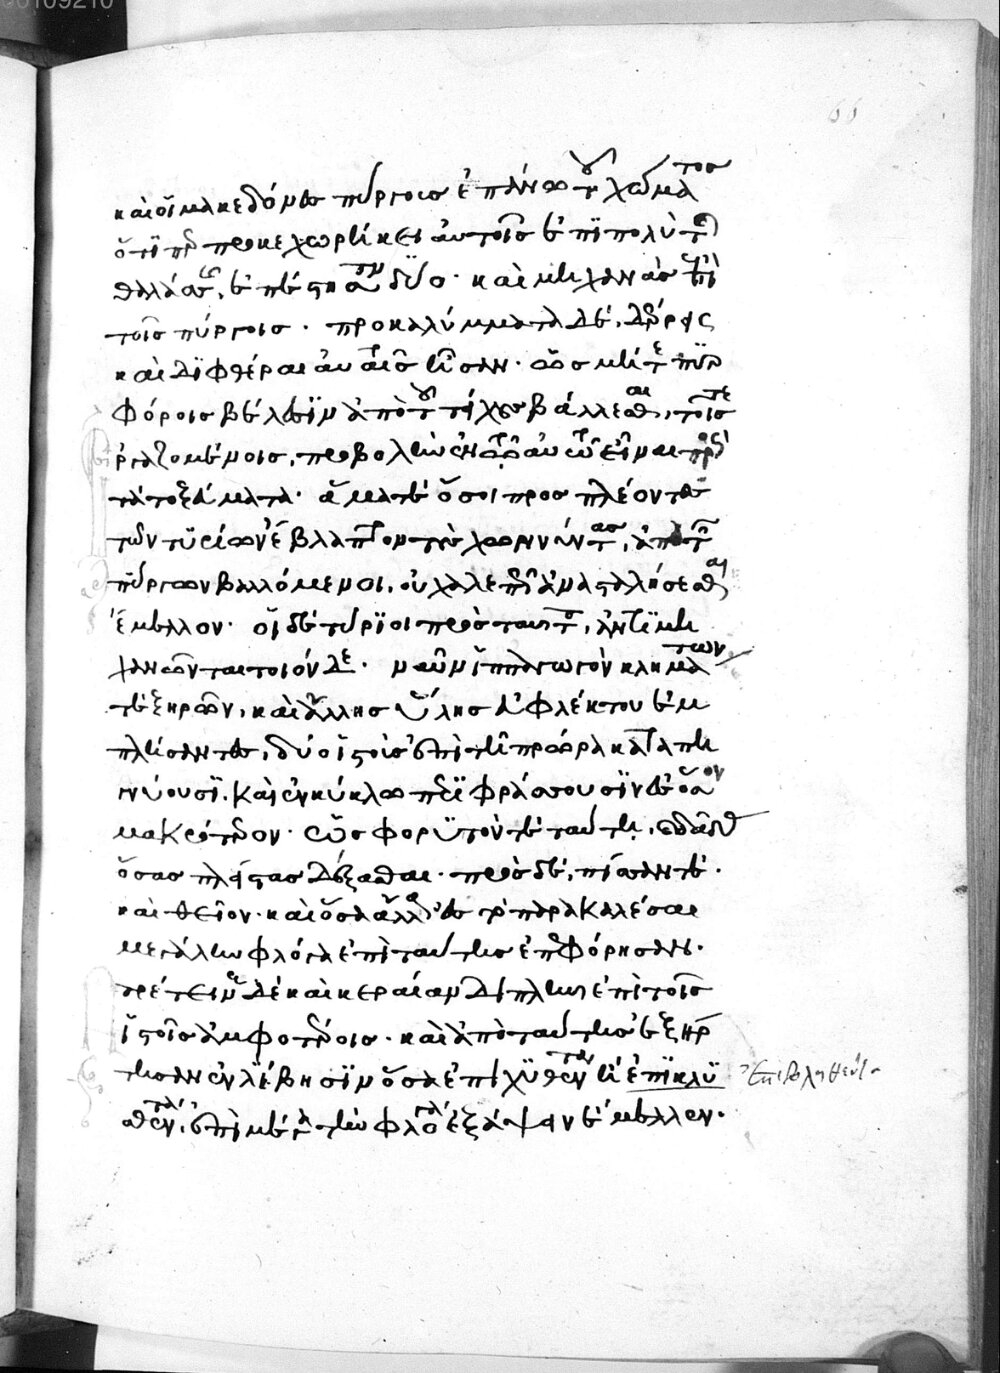 καὶ οἱ μακεδόνες πύργους ἐπ' ἄκρου τοῦ χώματος
ὅτι περ προκεχωρήκει αὐτοῖς ἐπιπολὺ τῆς
θαλάσσης, ἐπέστησαν δύο. καὶ μηχανὰς ἐπὶ
τοῖς πύργοις. προκαλύμματα δὲ, δέρρεις
καὶ διφθέραι αὐταῖς ἦσαν. ὡς μήτε πυρ
φόροις βέλεσιν ἀπὸ τοῦ τείχους βάλλεσθαι, τοῖς τε
ἐργαζομένοις, προβολὴν ἐν τῷ αὐτῷ εἶναι πρὸς
τὰ τοξεύματα. ἅμα τὲ ὅσοι προσπλέοντες
τῶν τυρίων ἔβλαπτον τοὺς χωννύντας, ἀπὸ τῶν
πύργων βαλλόμενοι, οὐ χαλεπῶς ἀνασταλήσεσθαι
ἔμελλον. οἱ δὲ τύριοι πρὸς ταῦτα, ἀντιμη
χανῶνται τοιόνδε. ναῦν ἱππαγωγὸν κλημάτων
τὲ ξηρῶν, καὶ ἄλλης ὕλης εὐφλέκτου ἐμ
πλήσαντες, δύο ἱστοὺς ἐπὶ τῆ πρώρα καταπη
γνύουσι. καὶ ἐν κύκλω περιφράσσουσιν ἐς ὅσον
μακρότατον. ὡς φορυτόν τὲ ταύτη, καὶ δᾶδας
ὅσας πλείστας δέξασθαι. πρὸς δὲ, πίσσαν τὲ.
καὶ θεῖον. καὶ ὅσα ἄλλα ἐς τὸ παρακαλέσαι
μεγάλην φλόγα ἐπὶ ταύτης ἐπεφόρησαν.
παρέτειναν δὲ καὶ κεραίαν διπλῆν ἐπὶ τοῖς
ἱστοῖς ἀμφοτέροις. καὶ ἀπὸ ταύτης ἐξήρ
τησαν ἐν λέβησιν ὅσα ἐπιχυθέντα ἢ ἐπικλυ ἐπιβληθέντα
θέντα, ἐπὶ μέγα τὴν φλόγα ἐξάψειν ἔμελλεν.